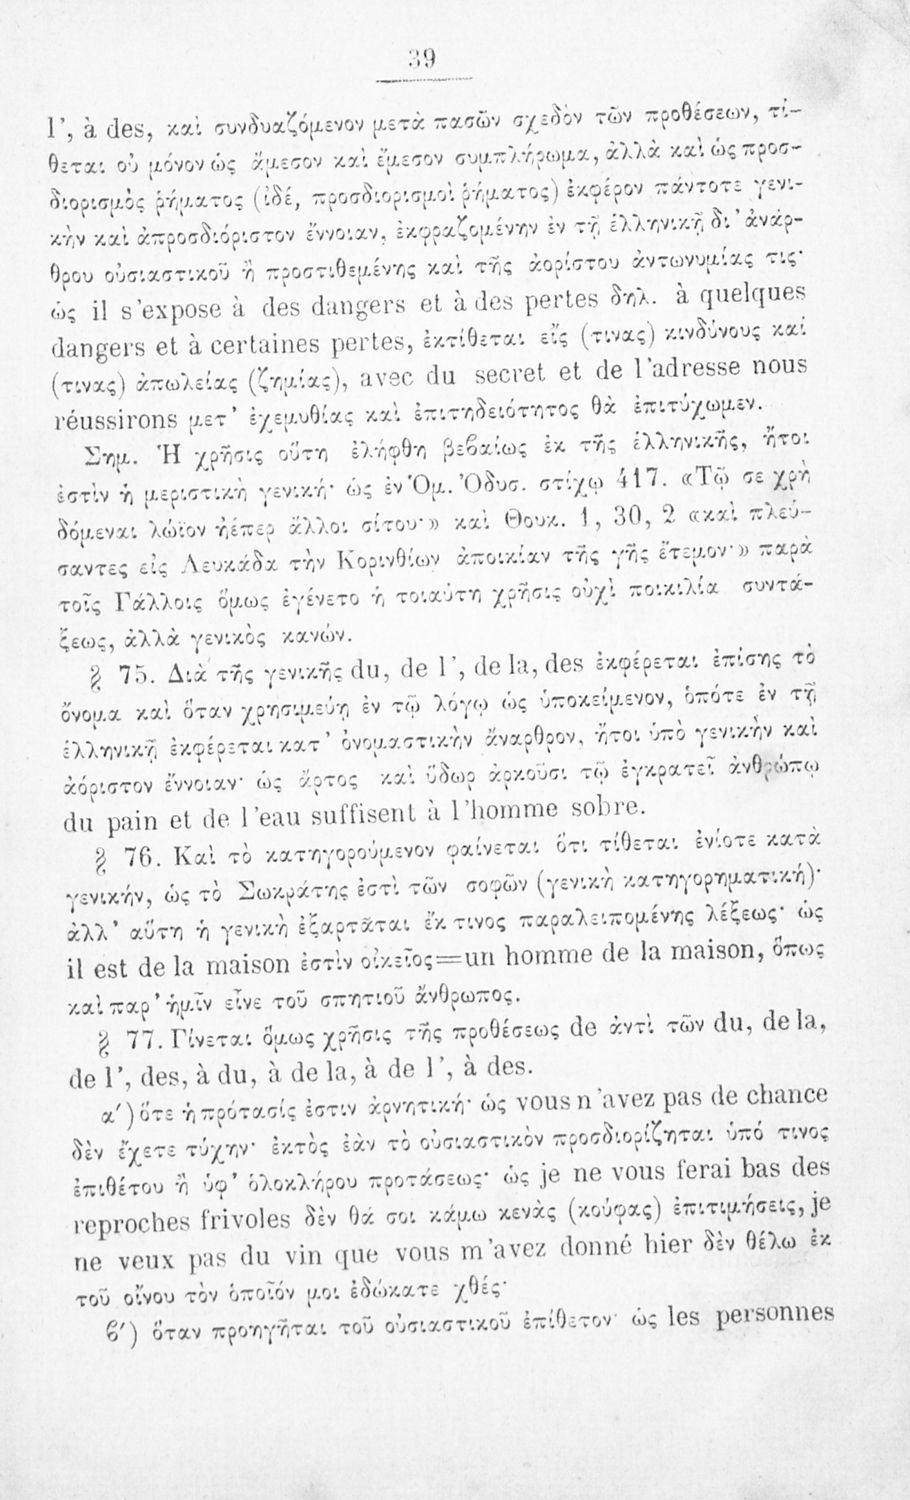 39
l', à des, καὶ συνδυαζόμενον μετὰ πασῶν σχεδὸν τῶν προθέσεων, τί-
θεται οὐ μόνον ὡς ἄμεσον καὶ ἔμεσον συμπλήρωμα, ἀλλὰ καὶ ὡς προσ-
διορισμὸς ῥήματος (ἰδέ, προσδιορισμοὶ ῥήματος) ἐκφέρον πάντοτε γενι-
κὴν καὶ ἀπροσδιόριστον ἔννοιαν, ἐκφραζομένην ἐν τῇ ἑλληνικῇ δι' ἀνάρ-
θρου οὐσιαστικοῦ ἢ προστιθεμένης καὶ τῆς ἀορίστου ἀντωνυμίας τις·
ὡς il s'expose à des dangers et à des pertes δηλ. à quelques
dangers et à certaines pertes, ἐκτίθεται εἴς (τινας) κινδύνους καί
(τινας) ἀπωλείας (ζημίας), avec du secret et de l'adresse nous
réussirons μετ' ἐχεμυθίας καὶ ἐπιτηδειότητος θὰ ἐπιτύχωμεν.
Σημ. Ἡ χρῆσις οὕτη ἐλήφθη βεβαίως ἐκ τῆς ἑλληνικῆς, ἤτοι
ἐστὶν ἡ μεριστικὴ γενική· ὡς ἐν Ὁμ. Ὀδυσ. στίχῳ 417. «Τῷ σε χρὴ
δόμεναι λώϊον ἠέπερ ἄλλοι σίτου·» καὶ Θουκ. 1, 30, 2 «καὶ πλεύ-
σαντες εἰς Λευκάδα τὴν Κορινθίων ἀποικίαν τῆς γῆς ἔτεμον·» παρὰ
τοῖς Γάλλοις ὅμως ἐγένετο ἡ τοιαύτη χρῆσις οὐχὶ ποικιλία συντά-
ξεως, ἀλλὰ γενικὸς κανών.
§ 75. Διὰ τῆς γενικῆς du, de l', de la, des ἐκφέρεται ἐπίσης τὸ
ὄνομα καὶ ὅταν χρησιμεύῃ ἐν τῷ λόγῳ ὡς ὑποκείμενον, ὁπότε ἐν τῇ
ἑλληνικῇ ἐκφέρεται κατ' ὀνομαστικὴν ἄναρθρον, ἤτοι ὑπὸ γενικὴν καὶ
ἀόριστον ἔννοιαν· ὡς ἄρτος καὶ ὕδωρ ἀρκοῦσι τῷ ἐγκρατεῖ ἀνθρώπῳ
du pain et de l'eau suffisent à l'homme sobre.
§ 76. Καὶ τὸ κατηγορούμενον φαίνεται ὅτι τίθεται ἐνίοτε κατὰ
γενικήν, ὡς τὸ Σωκράτης ἐστὶ τῶν σοφῶν (γενικὴ κατηγορηματική)·
ἀλλ' αὕτη ἡ γενικὴ ἐξαρτᾶται ἔκ τινος παραλειπομένης λέξεως· ὡς
il est de la maison ἐστὶν οἰκεῖος=un homme de la maison, ὅπως
καὶ παρ' ἡμῖν εἶνε τοῦ σπητιοῦ ἄνθρωπος.
§ 77. Γίνεται ὅμως χρῆσις τῆς προθέσεως de ἀντὶ τῶν du, de la,
de l', des, à du, à de la, à de l', à des.
α') ὅτε ἡ πρότασίς ἐστιν ἀρνητική· ὡς vous n'avez pas de chance
δὲν ἔχετε τύχην· ἐκτὸς ἐὰν τὸ οὐσιαστικὸν προσδιορίζηται ὑπό τινος
ἐπιθέτου ἢ ὑφ' ὁλοκλήρου προτάσεως· ὡς je ne vous ferai bas des
reproches frivoles δὲν θά σοι κάμω κενὰς (κούφας) ἐπιτιμήσεις, je
ne veux pas du vin que vous m'avez donné hier δὲν θέλω ἐκ
τοῦ οἴνου τὸν ὁποῖόν μοι ἐδώκατε χθές·
β') ὅταν προηγῆται τοῦ οὐσιαστικοῦ ἐπίθετον· ὡς les personnes